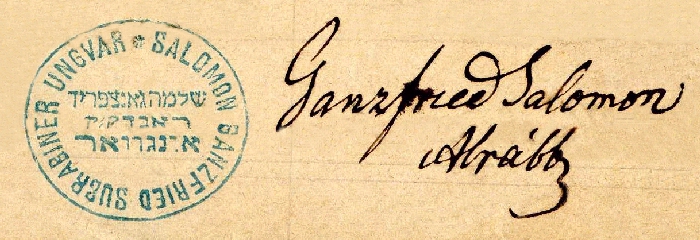 SALOMON GANZFRIED SUBRABINER UNGVAR
שלמה גאנצפריד
ראבדק"ק
אונגוואר
Ganzfried Salomon
Alrább